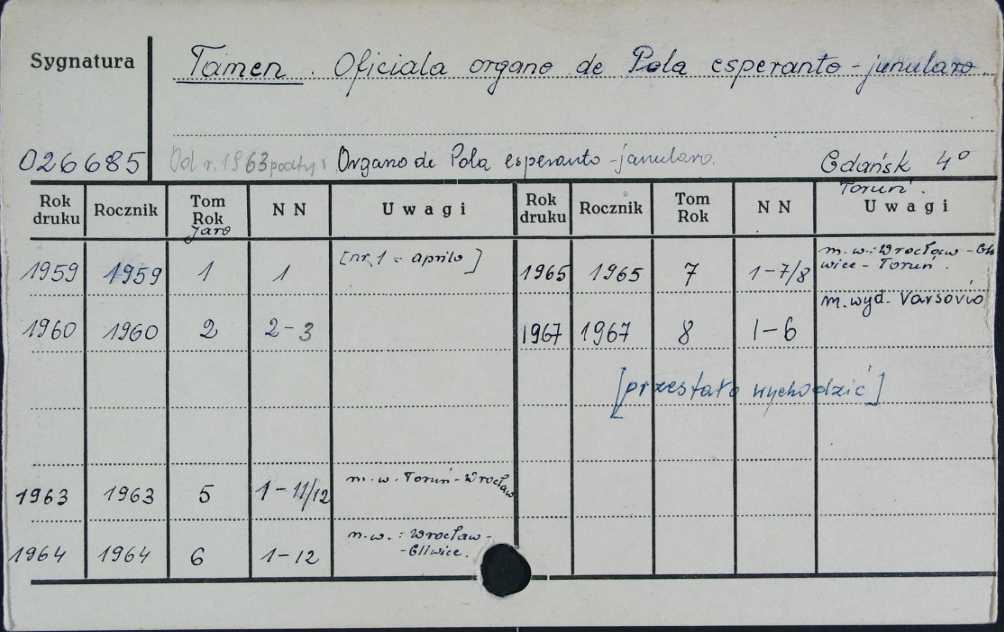 Sygnatura
Tamen. Oficiala organo de Pola esperanto-junularo.
026685 Od r. 1963 podtyt: Organo de Pola esperanto-junularo. Gdańsk 4°
Toruń.
Rok druku Rocznik Tom Rok Jaro NN Uwagi Rok druku Rocznik Tom Rok NN Uwagi
1959 1959 1 1 [nr 1 = aprilo] 1965 1965 7 1-7/8 m.w.: Wrocław-Gliwice-Toruń.
1960 1960 2 2-3 1967 1967 8 1-6 m. wyd. Varsovio
[przestało wychodzić]
1963 1963 5 1-11/12 m.w. Toruń-Wrocław
1964 1964 6 1-12 m.w.: Wrocław-
-Gliwice.